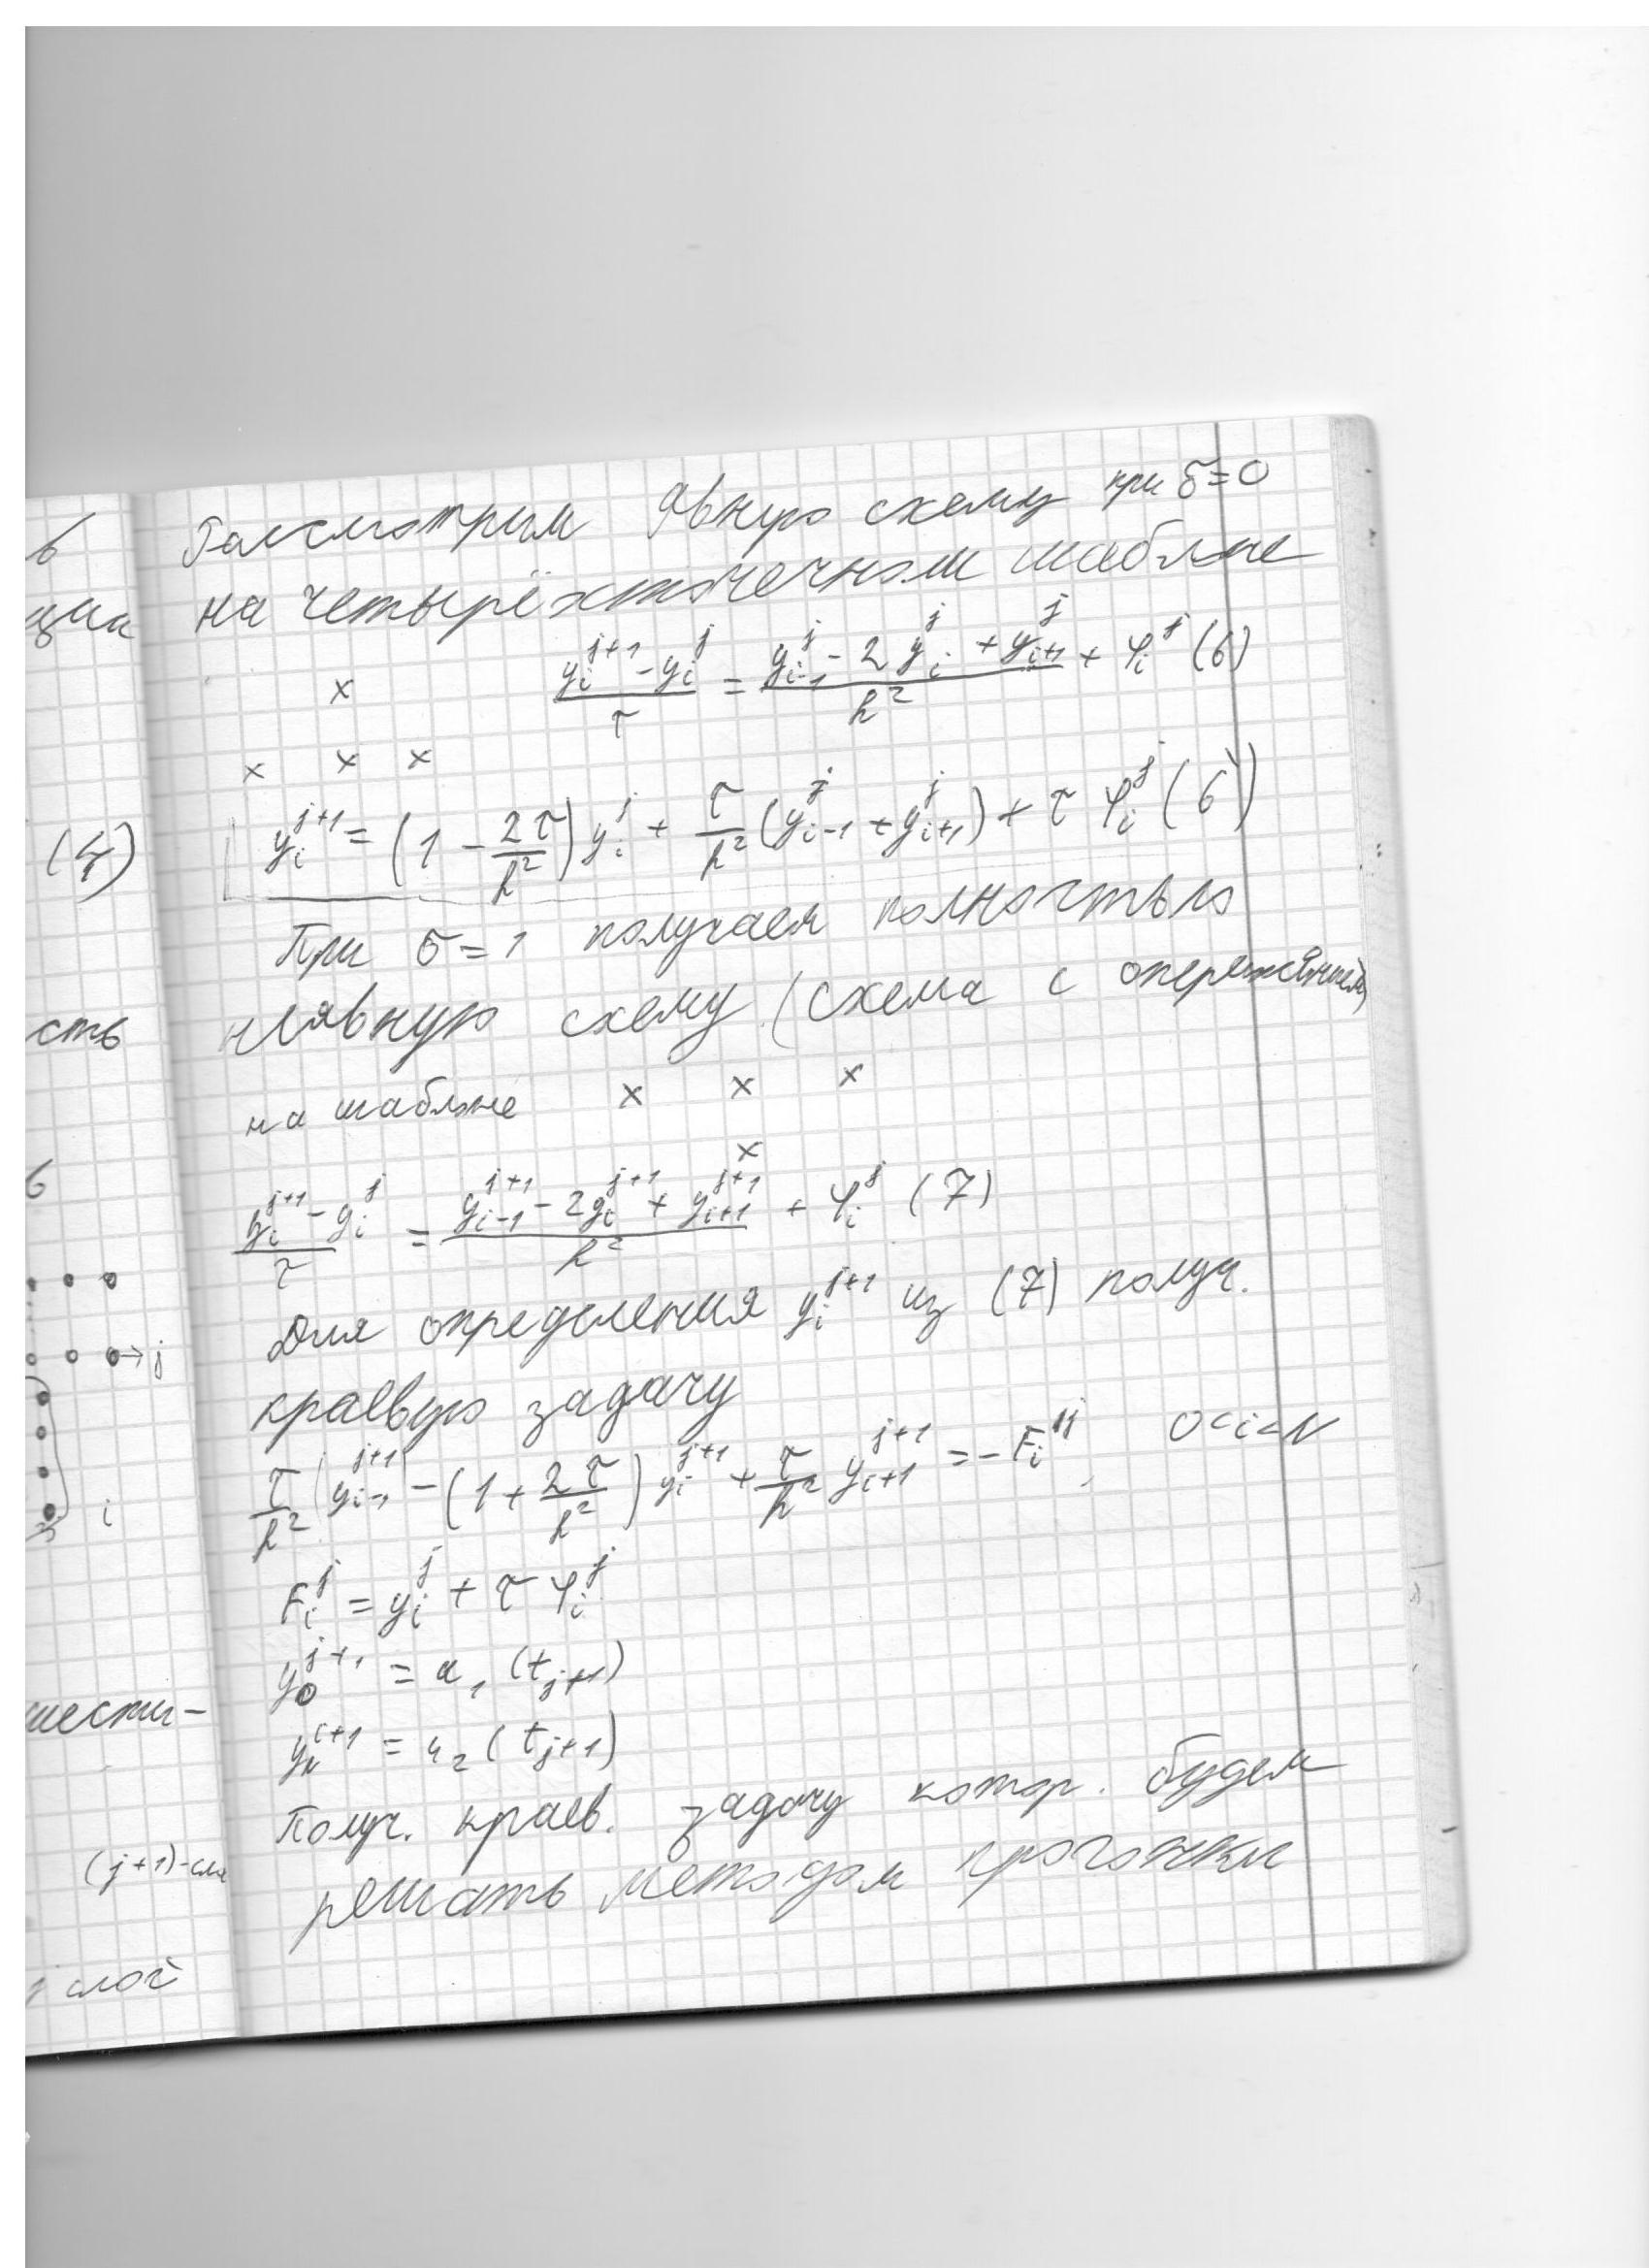 в
ции
(4)
сть
в
j
i
шести-
(j+1)-сло
слой
Рассмотрим явную схему при σ=0
на четырёхточечном шаблоне
x
(y_i^{j+1} - y_i^j)/τ = (y_{i-1}^j - 2y_i^j + y_{i+1}^j)/h² + φ_i^j (6)
x x x
y_i^{j+1} = (1 - 2τ/h²) y_i^j + τ/h² (y_{i-1}^j + y_{i+1}^j) + τ φ_i^j (6')
При σ=1 получаем полностью
неявную схему (схема с опережением)
на шаблоне x x x
x
(y_i^{j+1} - y_i^j)/τ = (y_{i-1}^{j+1} - 2y_i^{j+1} + y_{i+1}^{j+1})/h² + φ_i^j (7)
Для определения y_i^{j+1} из (7) получ.
краевую задачу
τ/h² y_{i-1}^{j+1} - (1 + 2τ/h²) y_i^{j+1} + τ/h² y_{i+1}^{j+1} = - F_i^j, 0<i<N
F_i^j = y_i^j + τ φ_i^j
y_0^{j+1} = u_1 (t_{j+1})
y_N^{j+1} = u_2 (t_{j+1})
Получ. краев. задачу котор. будем
решать методом прогонки